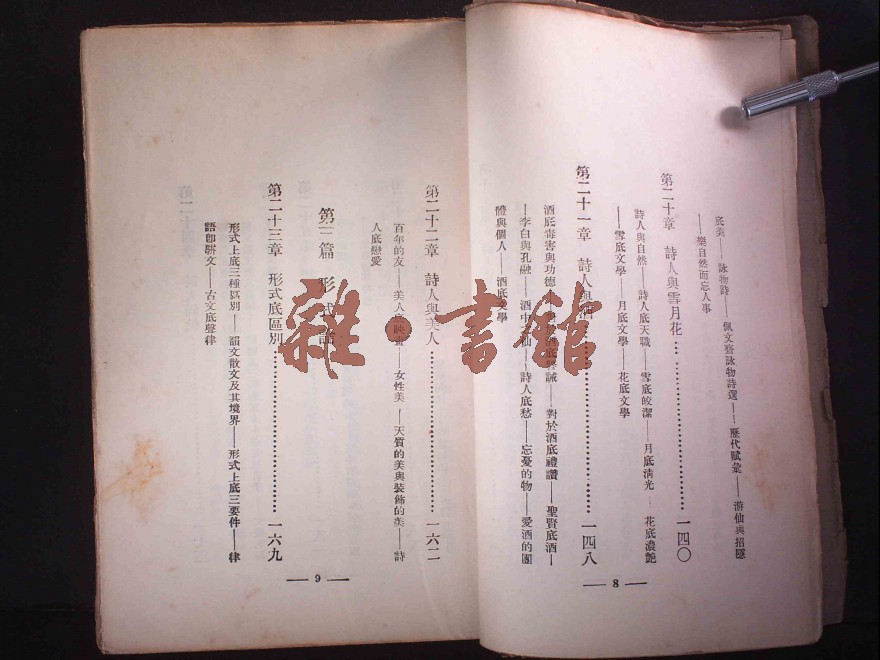 底美——詠物詩——佩文齋詠物詩選——歷代賦彙——游仙與招隱
——樂自然而忘人事
第二十章 詩人與雪月花…………………一四〇
詩人與自然——詩人底天職——雪底皎潔——月底清光——花底濃艷
——雪底文學——月底文學——花底文學
第二十一章 詩人與酒…………………一四八
酒底毒害與功德——對於酒底禮讚——聖賢底酒——
——李白與孔融——酒中仙——詩人底愁——忘憂的物——愛酒的團
體與個人——酒底文學
— 8 —
第二十二章 詩人與美人…………………一六二
百年的友——美人——女性美——天質的美與裝飾的美——詩
人底戀愛
第三篇 形式論
第二十三章 形式底區別…………………一六九
形式上底三種區別——韻文散文及其境界——形式上底三要件——律
語卽駢文——古文底聲律
— 9 —
雜·書館